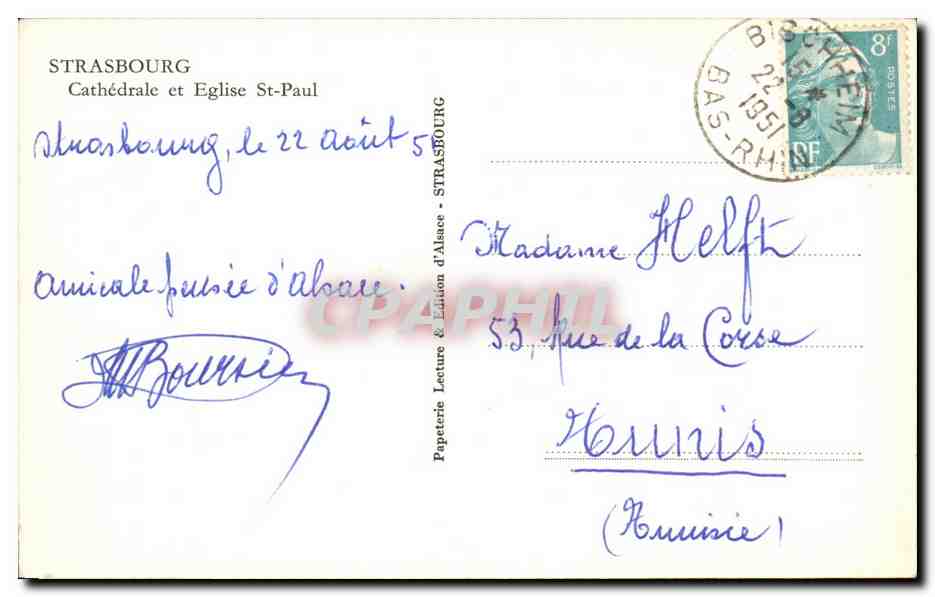 STRASBOURG
Cathédrale et Eglise St-Paul
Strasbourg, le 22 Août 51
Amicale pensée d'Alsace.
Papeterie Lecture & Edition d'Alsace - STRASBOURG
CPAPHIL
BISCHHEIM
15 *
22-8
1951
BAS-RHIN
8f
POSTES
RF
Madame Helft
53, Rue de la Corse
Tunis
(Tunisie)